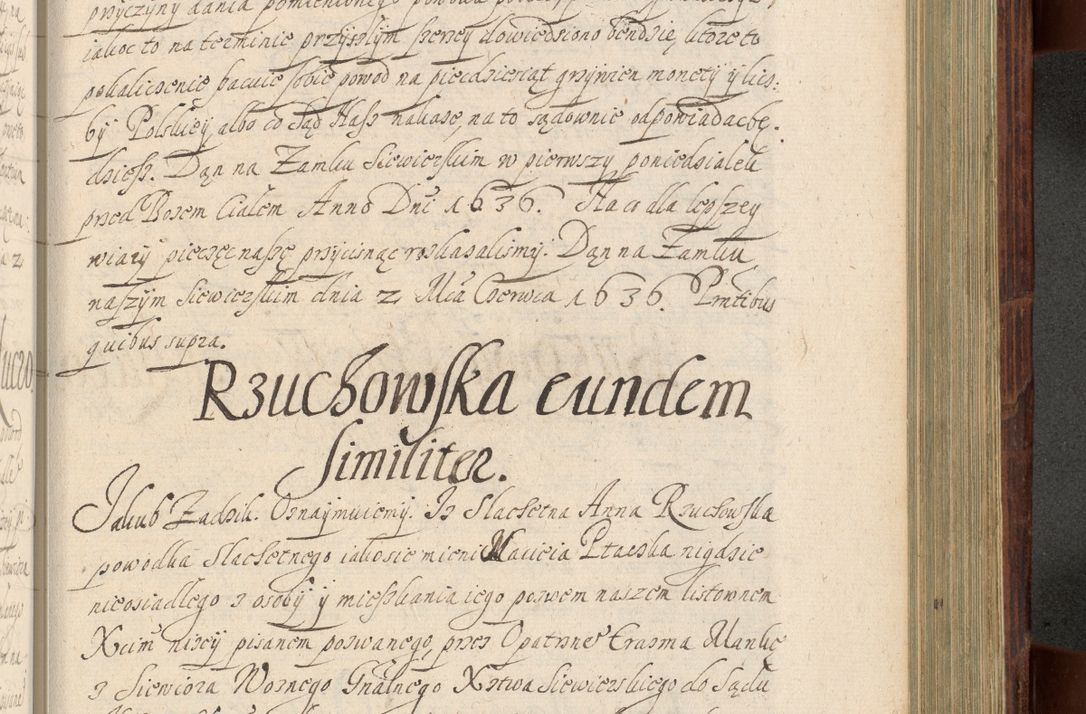 przyczyny dania pomienionego
iakoc to na terminie przyszłym szerzey dowiedziono bendzie, ktore to
pokaliczenie szacuie sobie powod na piecdziesiąt grzywien monety y licz:
by Polskiey, albo co Sąd Nasz nakaże, na to sądownie odpowiadac bę:
dziesz. Dan na Zamku Siewierskim w pierwszy poniedziałek
przed Bozem Ciałem Anno Dni 1636. Na co dla lepszey
wiary pieczęc naszę przycisnąc roskazalismy. Dan na Zamku
naszym Siewierskim dnia 2 Mca Czerwca 1636. Pmtibus
quibus supra.
Rzuchowska eundem
similiter.
Jakub Zadzik. Oznaymuiemy. Iż Slachetna Anna Rzuchowska
powodka Slachetnego iakosie mieni Macieia Ptaszka nigdzie
nieosiadlego z osoby y mieszkania iego pozwem naszem listownem
Xcim nizey pisanem pozwanego, przez Opatrne Erazma Manke
z Siewiora Woznego Gnalnego Xstwa Siewierskiego do Sądu